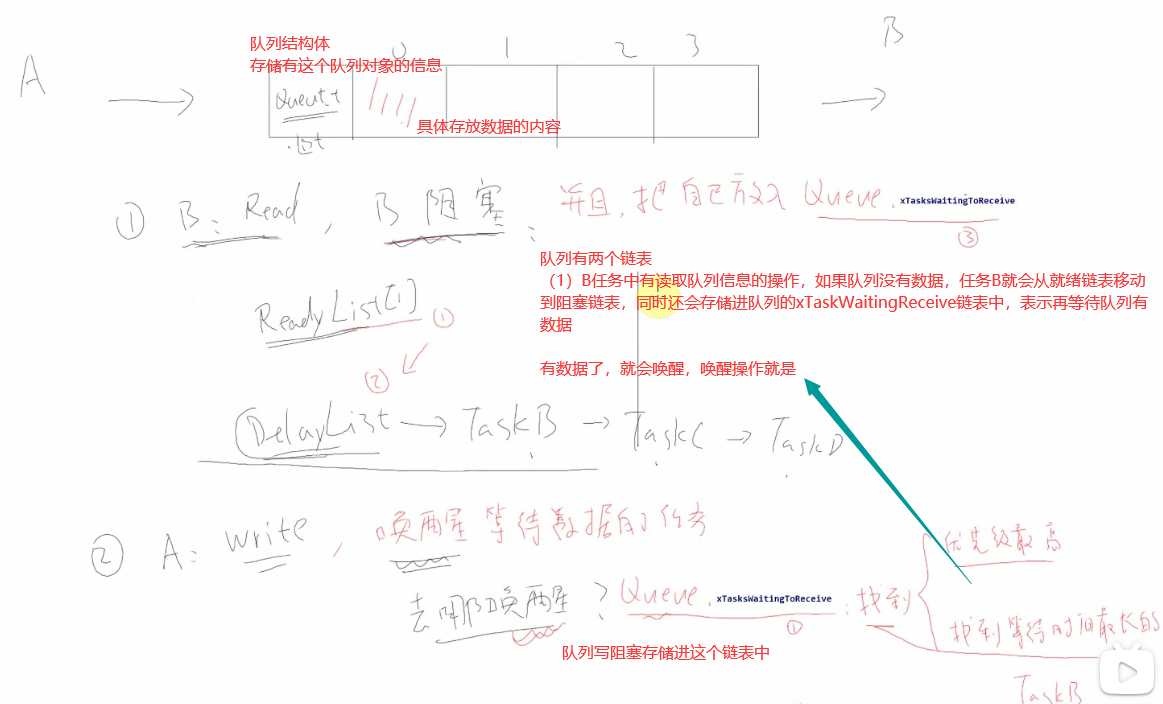 A
B
队列结构体
存储有这个队列对象的信息
0 1 2 3
具体存放数据的内容
① B: Read, B 阻塞; 并且, 把自己放入 Queue.xTasksWaitingToReceive
③
队列有两个链表
（1）B任务中有读取队列信息的操作，如果队列没有数据，任务B就会从就绪链表移动
到阻塞链表，同时还会存储进队列的xTaskWaitingReceive链表中，表示再等待队列有
数据
ReadyList[1] ①
②
有数据了，就会唤醒，唤醒操作就是
DelayList → TaskB → TaskC → TaskD
② A: write, 唤醒等待数据的任务
优先级最高
去哪唤醒? Queue.xTasksWaitingToReceive : 找到
①
找到等待时间最长的
队列写阻塞存储进这个链表中
TaskB